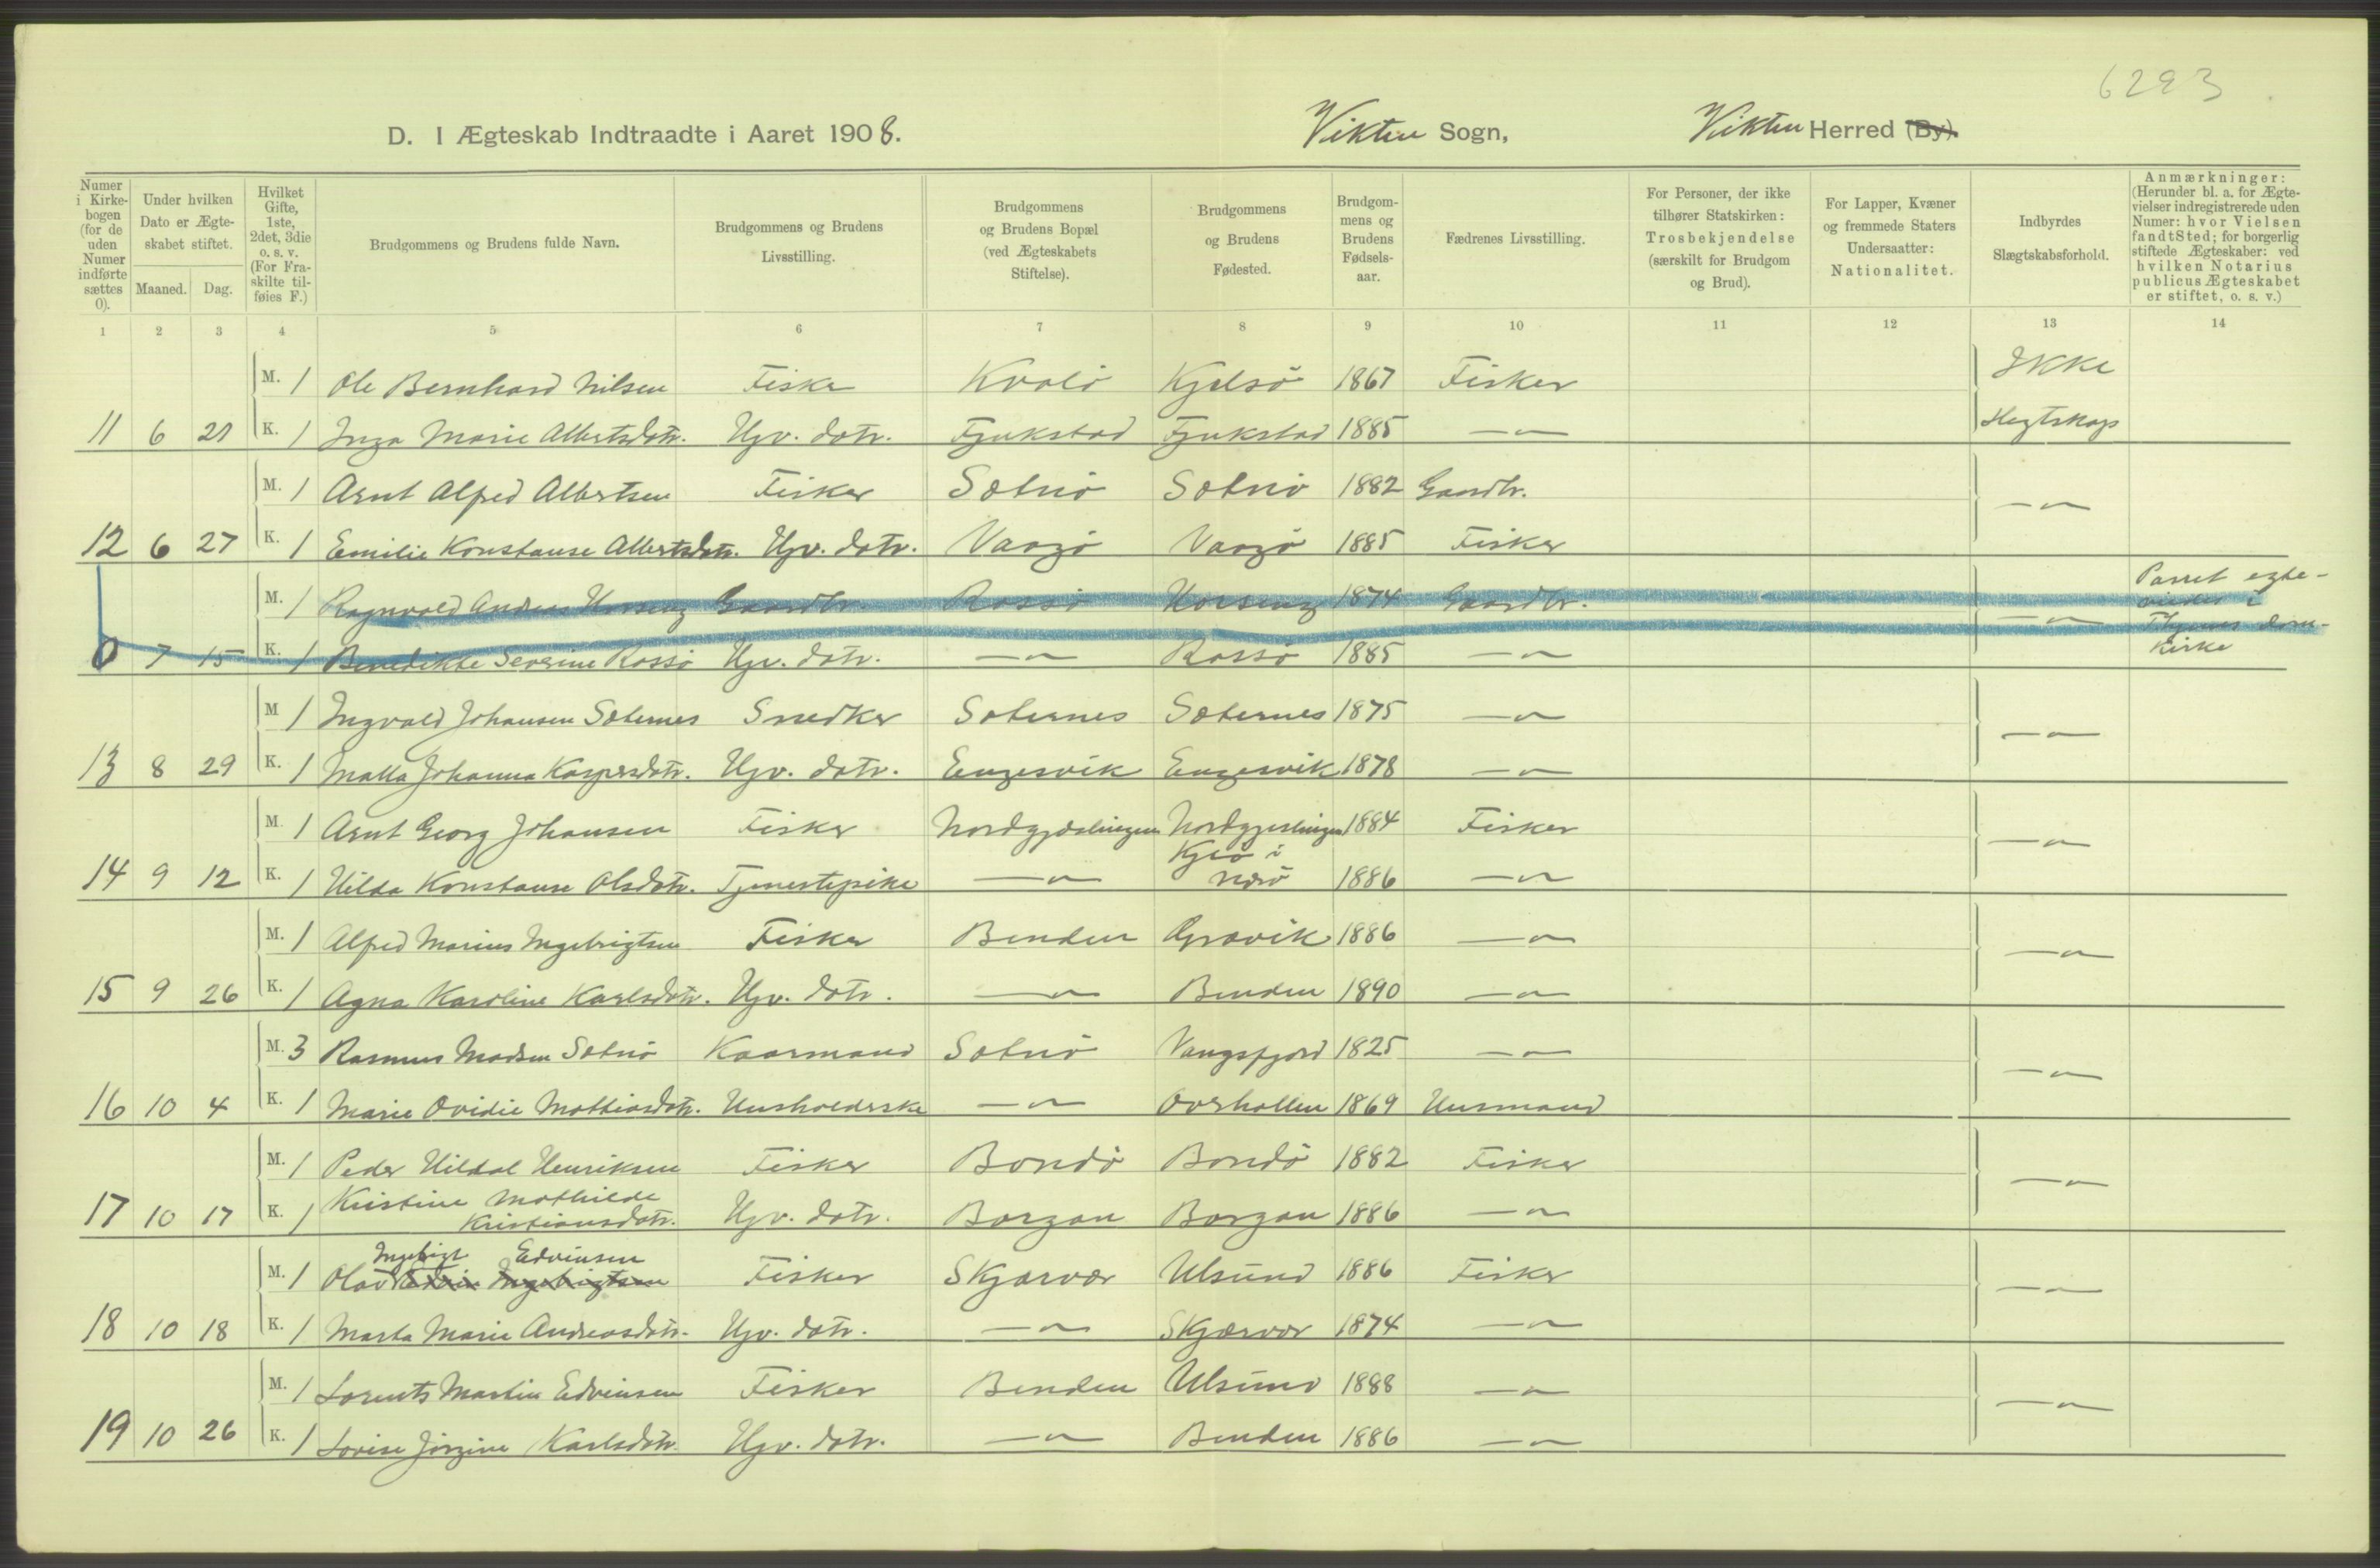 6293
D. I Ægteskab Indtraadte i Aaret 1908. Vikten Sogn, Vikten Herred (By).
Numer i Kirkebogen (for de uden Numer indførte sættes 0). Under hvilken Dato er Ægteskabet stiftet. Maaned. Dag. Hvilket Gifte, 1ste, 2det, 3die o. s. v. (For Fraskilte tilføies F.) Brudgommens og Brudens fulde Navn. Brudgommens og Brudens Livsstilling. Brudgommens og Brudens Bopæl (ved Ægteskabets Stiftelse). Brudgommens og Brudens Fødested. Brudgommens og Brudens Fødselsaar. Fædrenes Livsstilling. For Personer, der ikke tilhører Statskirken: Trosbekjendelse (særskilt for Brudgom og Brud). For Lapper, Kvæner og fremmede Staters Undersaatter: Nationalitet. Indbyrdes Slægtskabsforhold. Anmærkninger: (Herunder bl. a. for Ægtevielser indregistrerede uden Numer: hvor Vielsen fandt Sted; for borgerlig stiftede Ægteskaber: ved hvilken Notarius publicus Ægteskabet er stiftet, o. s. v.)
1 2 3 4 5 6 7 8 9 10 11 12 13 14
M. 1 Ole Bernhard Nilsen Fisker Kvalö Kjelsö 1867 Fisker Ikke
11 6 21 K. 1 Inga Marie Albertsdatr. Hjv. datr. Fjukstad Fjukstad 1885 —"— slegtskap
M. 1 Arnt Alfred Albertsen Fisker Sætnö Sætnö 1882 Gaardbr. —"—
12 6 27 K. 1 Emilie Konstanse Albertsdatr. Hjv. datr. Vaagö Vaagö 1885 Fisker
M. 1 Ragnvald Andreas Horseng Gaardbr. Rossö Horseng 1874 Gaardbr. —"— Parret egte-
viedes i
0 7 15 K. 1 Benedikte Severine Rossö Hjv. datr. —"— Rossö 1885 —"— Thjems dom-
kirke
M 1 Ingvald Johansen Sæternes Snedker Sæternes Sæternes 1875 —"— —"—
13 8 29 K. 1 Malla Johanna Kaspersdatr. Hjv. datr. Engesvik Engesvik 1878 —"—
M. 1 Arnt Georg Johansen Fisker Nordgjæslingen Nordgjæslingen 1884 Fisker —"—
14 9 12 K. 1 Hilda Konstanse Olsdatr. Tjenestepike —"— i Nærö 1886 —"—
M. 1 Alfred Marius Ingebrigtsen Fisker Binden Gravik 1886 —"— —"—
15 9 26 K. 1 Agna Karoline Karlsdatr. Hjv. datr. —"— Binden 1890 —"—
M. 3 Rasmus Madsen Sætnö Kaarmand Sætnö Vangsfjord 1825 —"— —"—
16 10 4 K. 1 Marie Ovidie Mathiasdatr. Husholderske —"— Overhallen 1869 Husmand
M. 1 Peder Hildal Henriksen Fisker Bondö Bondö 1882 Fisker —"—
17 10 17 K. 1 Kristine Mathilde Kristiansdatr. Hjv. datr. Borgan Borgan 1886 —"—
Ingebrigt Edvinsen
M. 1 Olav Edvin Ingebrigtsen Fisker Skjærvær Ulsund 1886 Fisker —"—
18 10 18 K. 1 Marta Marie Andreasdatr. Hjv. datr. —"— Skjærvær 1874 —"—
M. 1 Lorents Martin Edvinsen Fisker Binden Ulsund 1888 —"— —"—
19 10 26 K. 1 Lovise Jörgine Karlsdatr. Hjv. datr. —"— Binden 1886 —"—